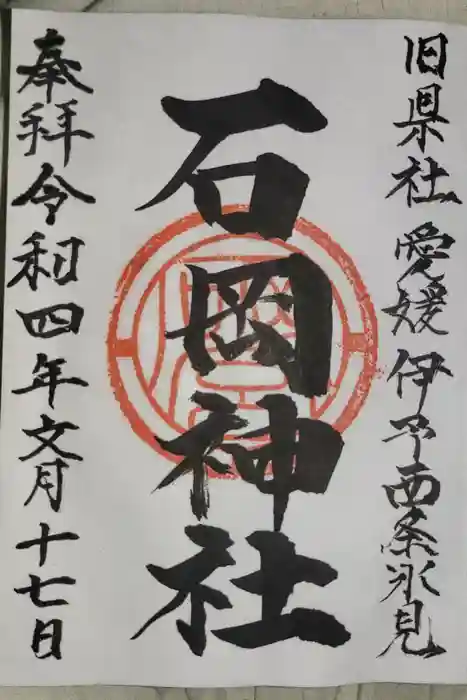 旧県社 愛媛伊予西条氷見
石岡神社
奉拝 令和四年文月十七日